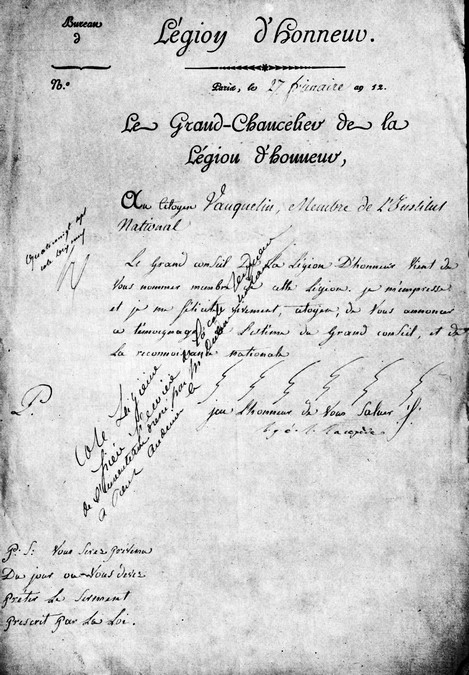 Bureau
d
Légion d'Honneur.
N.º
Paris, le 27 frimaire an 12.
Le Grand-Chancelier de la
Légion d'honneur,
Au Citoyen Vauquelin, Membre de L'Institut
National
Le Grand Conseil De La Légion D'honneur Vient de
Vous nommer membre de cette Légion. je m'empresse
et je me félicite vivement, citoyen, de Vous annoncer
ce témoignage de l'estime du Grand Conseil, et de
La reconnaissance nationale
P.
jeu L'honneur de Vous Saluer
Cote Loisième
de l'Inventaire
à Pont Audemer le
P. S. Vous Serez prévenu
Du jour ou Vous devez
Prêter Le Serment
Prescrit Par La Loi.